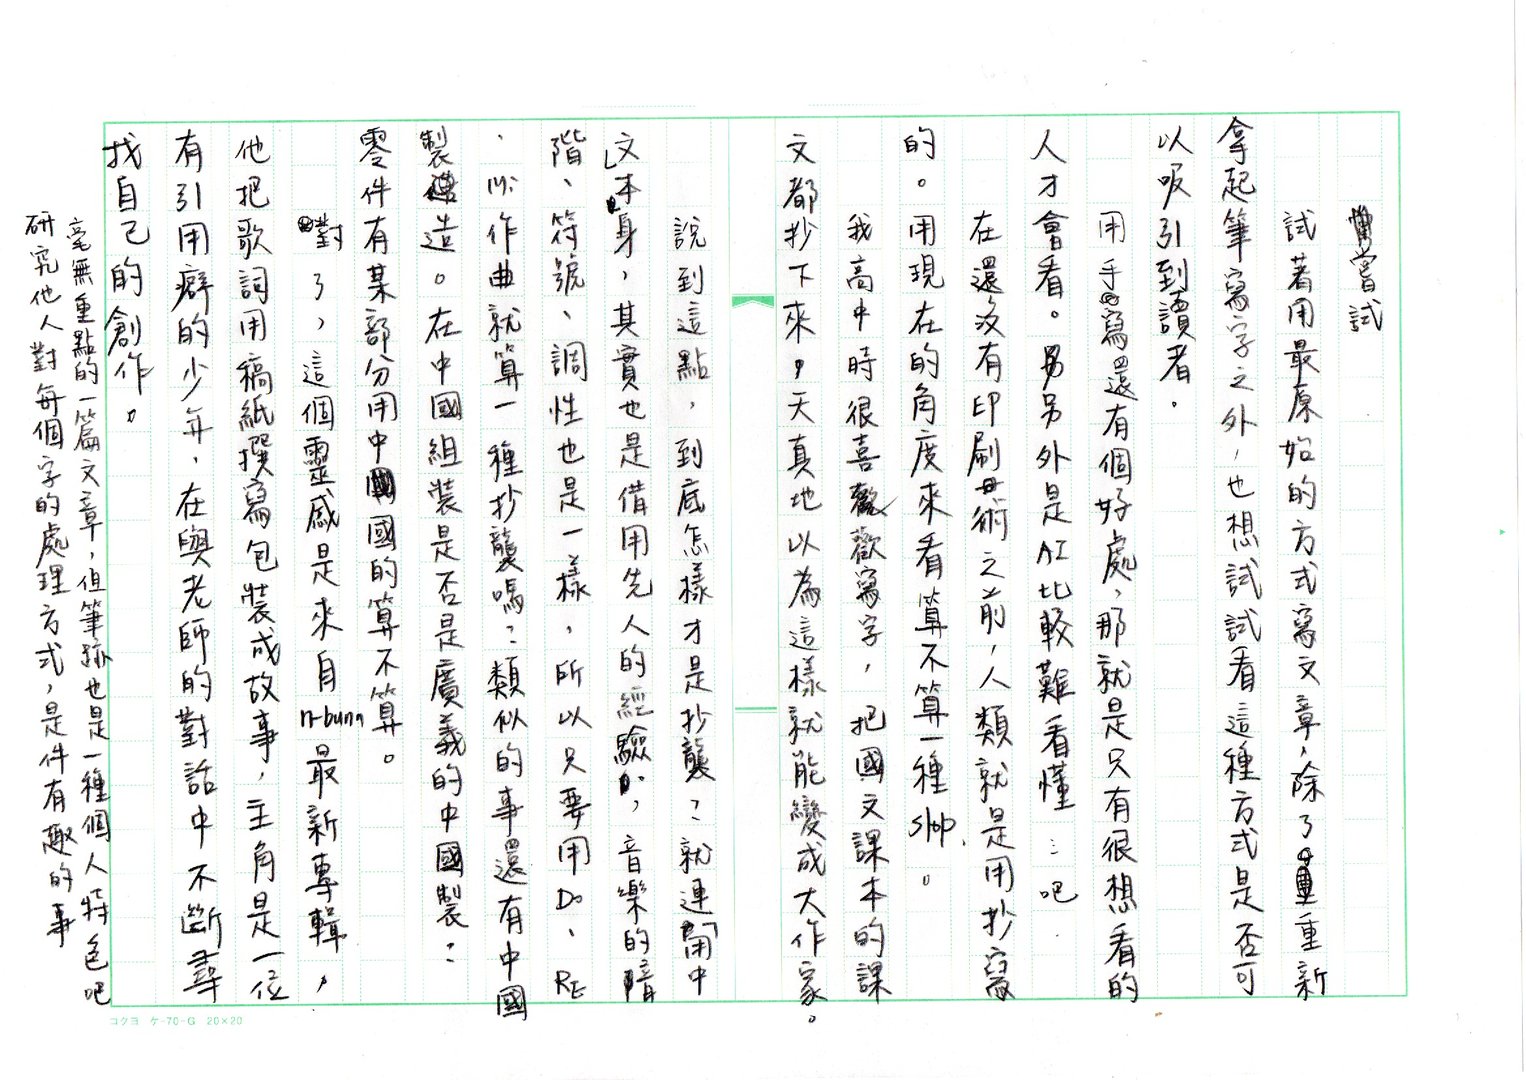 嘗試
試著用最原始的方式寫文章，除了重新
拿起筆寫字之外，也想試試看這種方式是否可
以吸引到讀者。
用手寫還有個好處，那就是只有很想看的
人才會看。另外是AI比較難看懂…吧
在還沒有印刷術之前，人類就是用抄寫
的。用現在的角度來看算不算一種slop。
我高中時很喜歡寫字，把國文課本的課
文都抄下來，天真地以為這樣就能變成大作家。
說到這點，到底怎樣才是抄襲？就連「用中
文」本身，其實也是借用先人的經驗，音樂的音
階、符號、調性也是一樣，所以只要用Do、RE
、Mi作曲就算一種抄襲嗎？類似的事還有中國
製造。在中國組裝是否是廣義的中國製？
零件有某部分用中國的算不算。
對了，這個靈感是來自n-buna最新專輯，
他把歌詞用稿紙撰寫包裝成故事，主角是一位
有引用癖的少年，在與老師的對話中不斷尋
找自己的創作。
毫無重點的一篇文章，但筆跡也是一種個人特色吧
研究他人對每個字的處理方式，是件有趣的事
コクヨ ケ-70-G 20×20